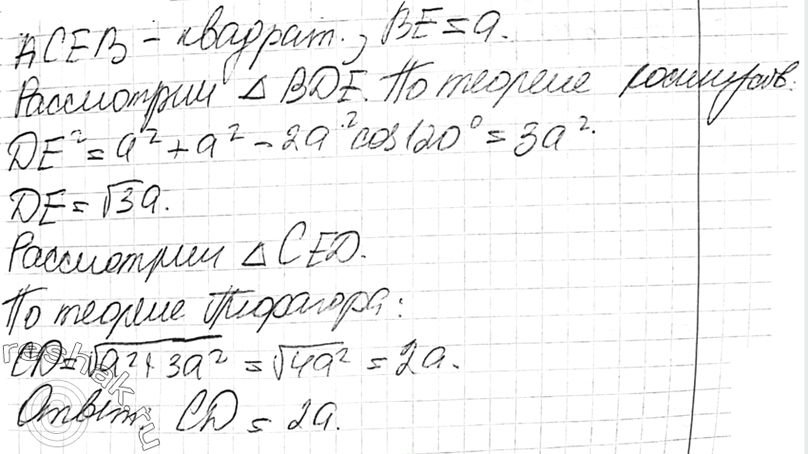 ACEB – квадрат, BE = a.
Рассмотрим △ BDE. По теореме косинусов:
DE² = a² + a² – 2a² · cos 120° = 3a².
DE = √3a.
Рассмотрим △ CED.
По теореме Пифагора:
CD = √a² + 3a² = √4a² = 2a.
Ответ: CD = 2a.
reshak.ru